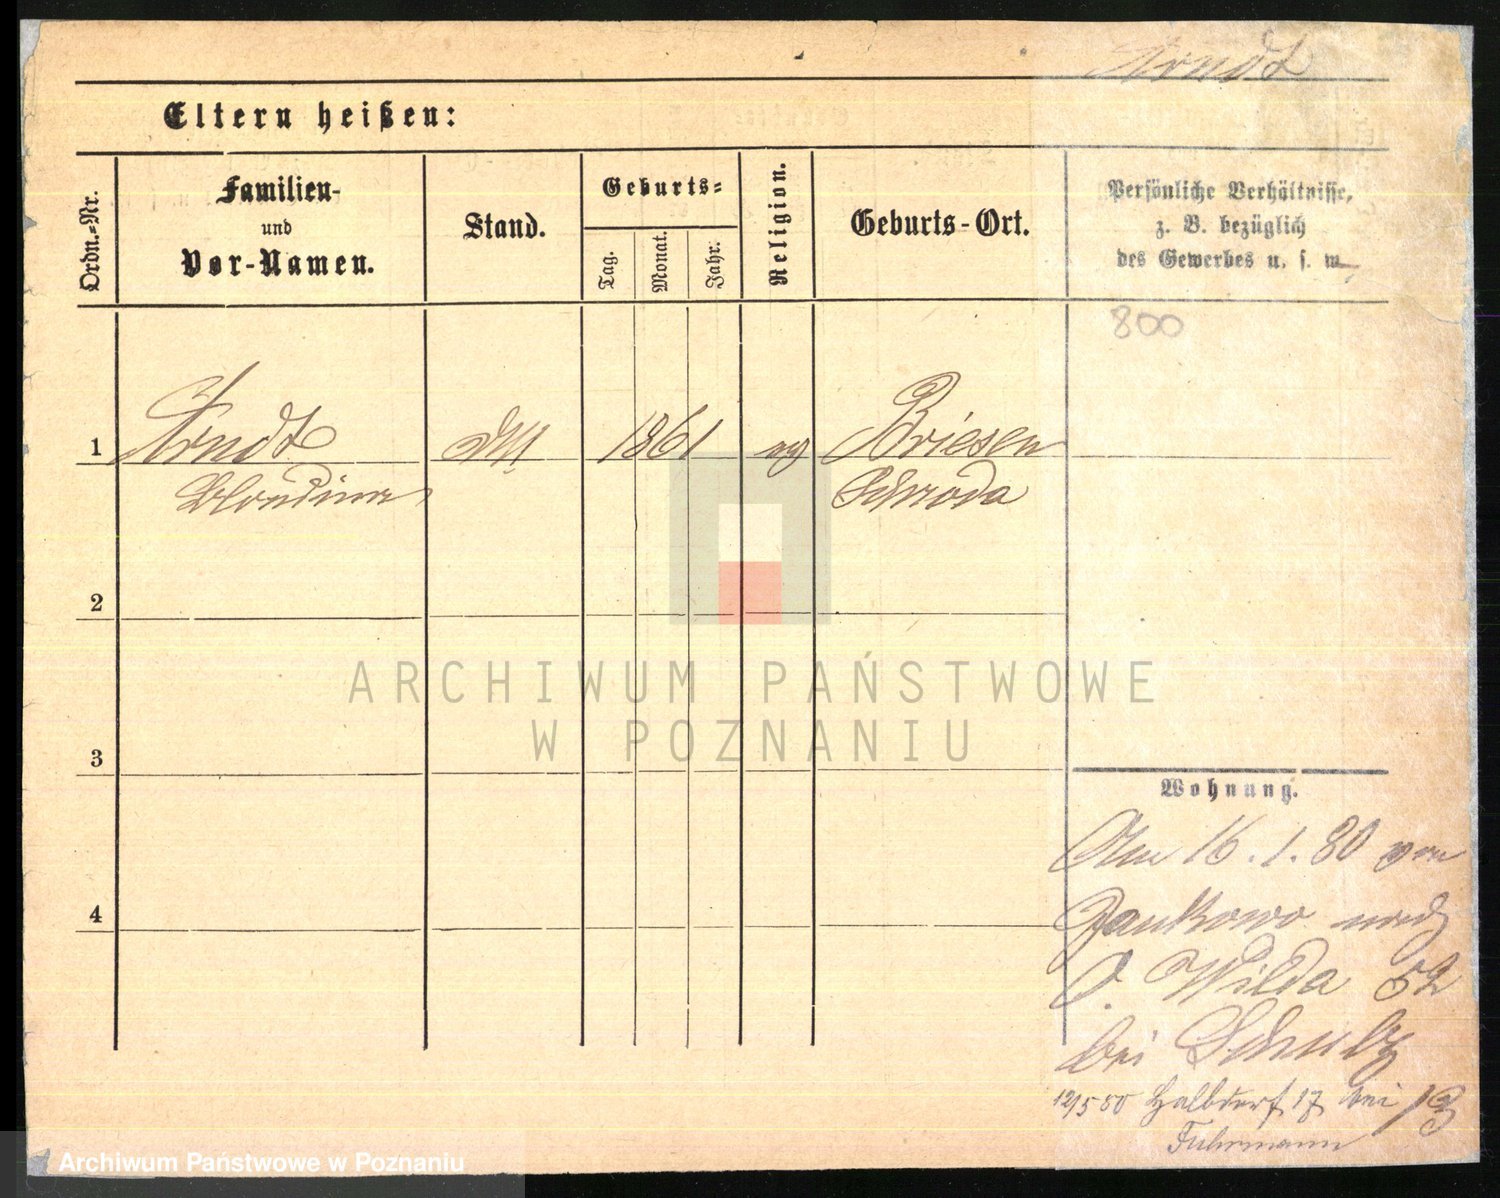 Arndt
Eltern heißen:
Ordn.-Nr.
Familien-
und
Vor-Namen.
Stand.
Geburts-
Tag.
Monat.
Jahr.
Religion.
Geburts-Ort.
Persönliche Verhältnisse,
z. B. bezüglich
des Gewerbes u. s. w.
800
1 Arndt 1861 Briesen
Blondina Schroda
2
3
4
Wohnung.
Am 16.1.80 von
Jankowo nach
O. Wilda 52
bei Schulz
12/5 80 Halbdorf 17 bei
Fuhrmann
ARCHIWUM PAŃSTWOWE
W POZNANIU
Archiwum Państwowe w Poznaniu